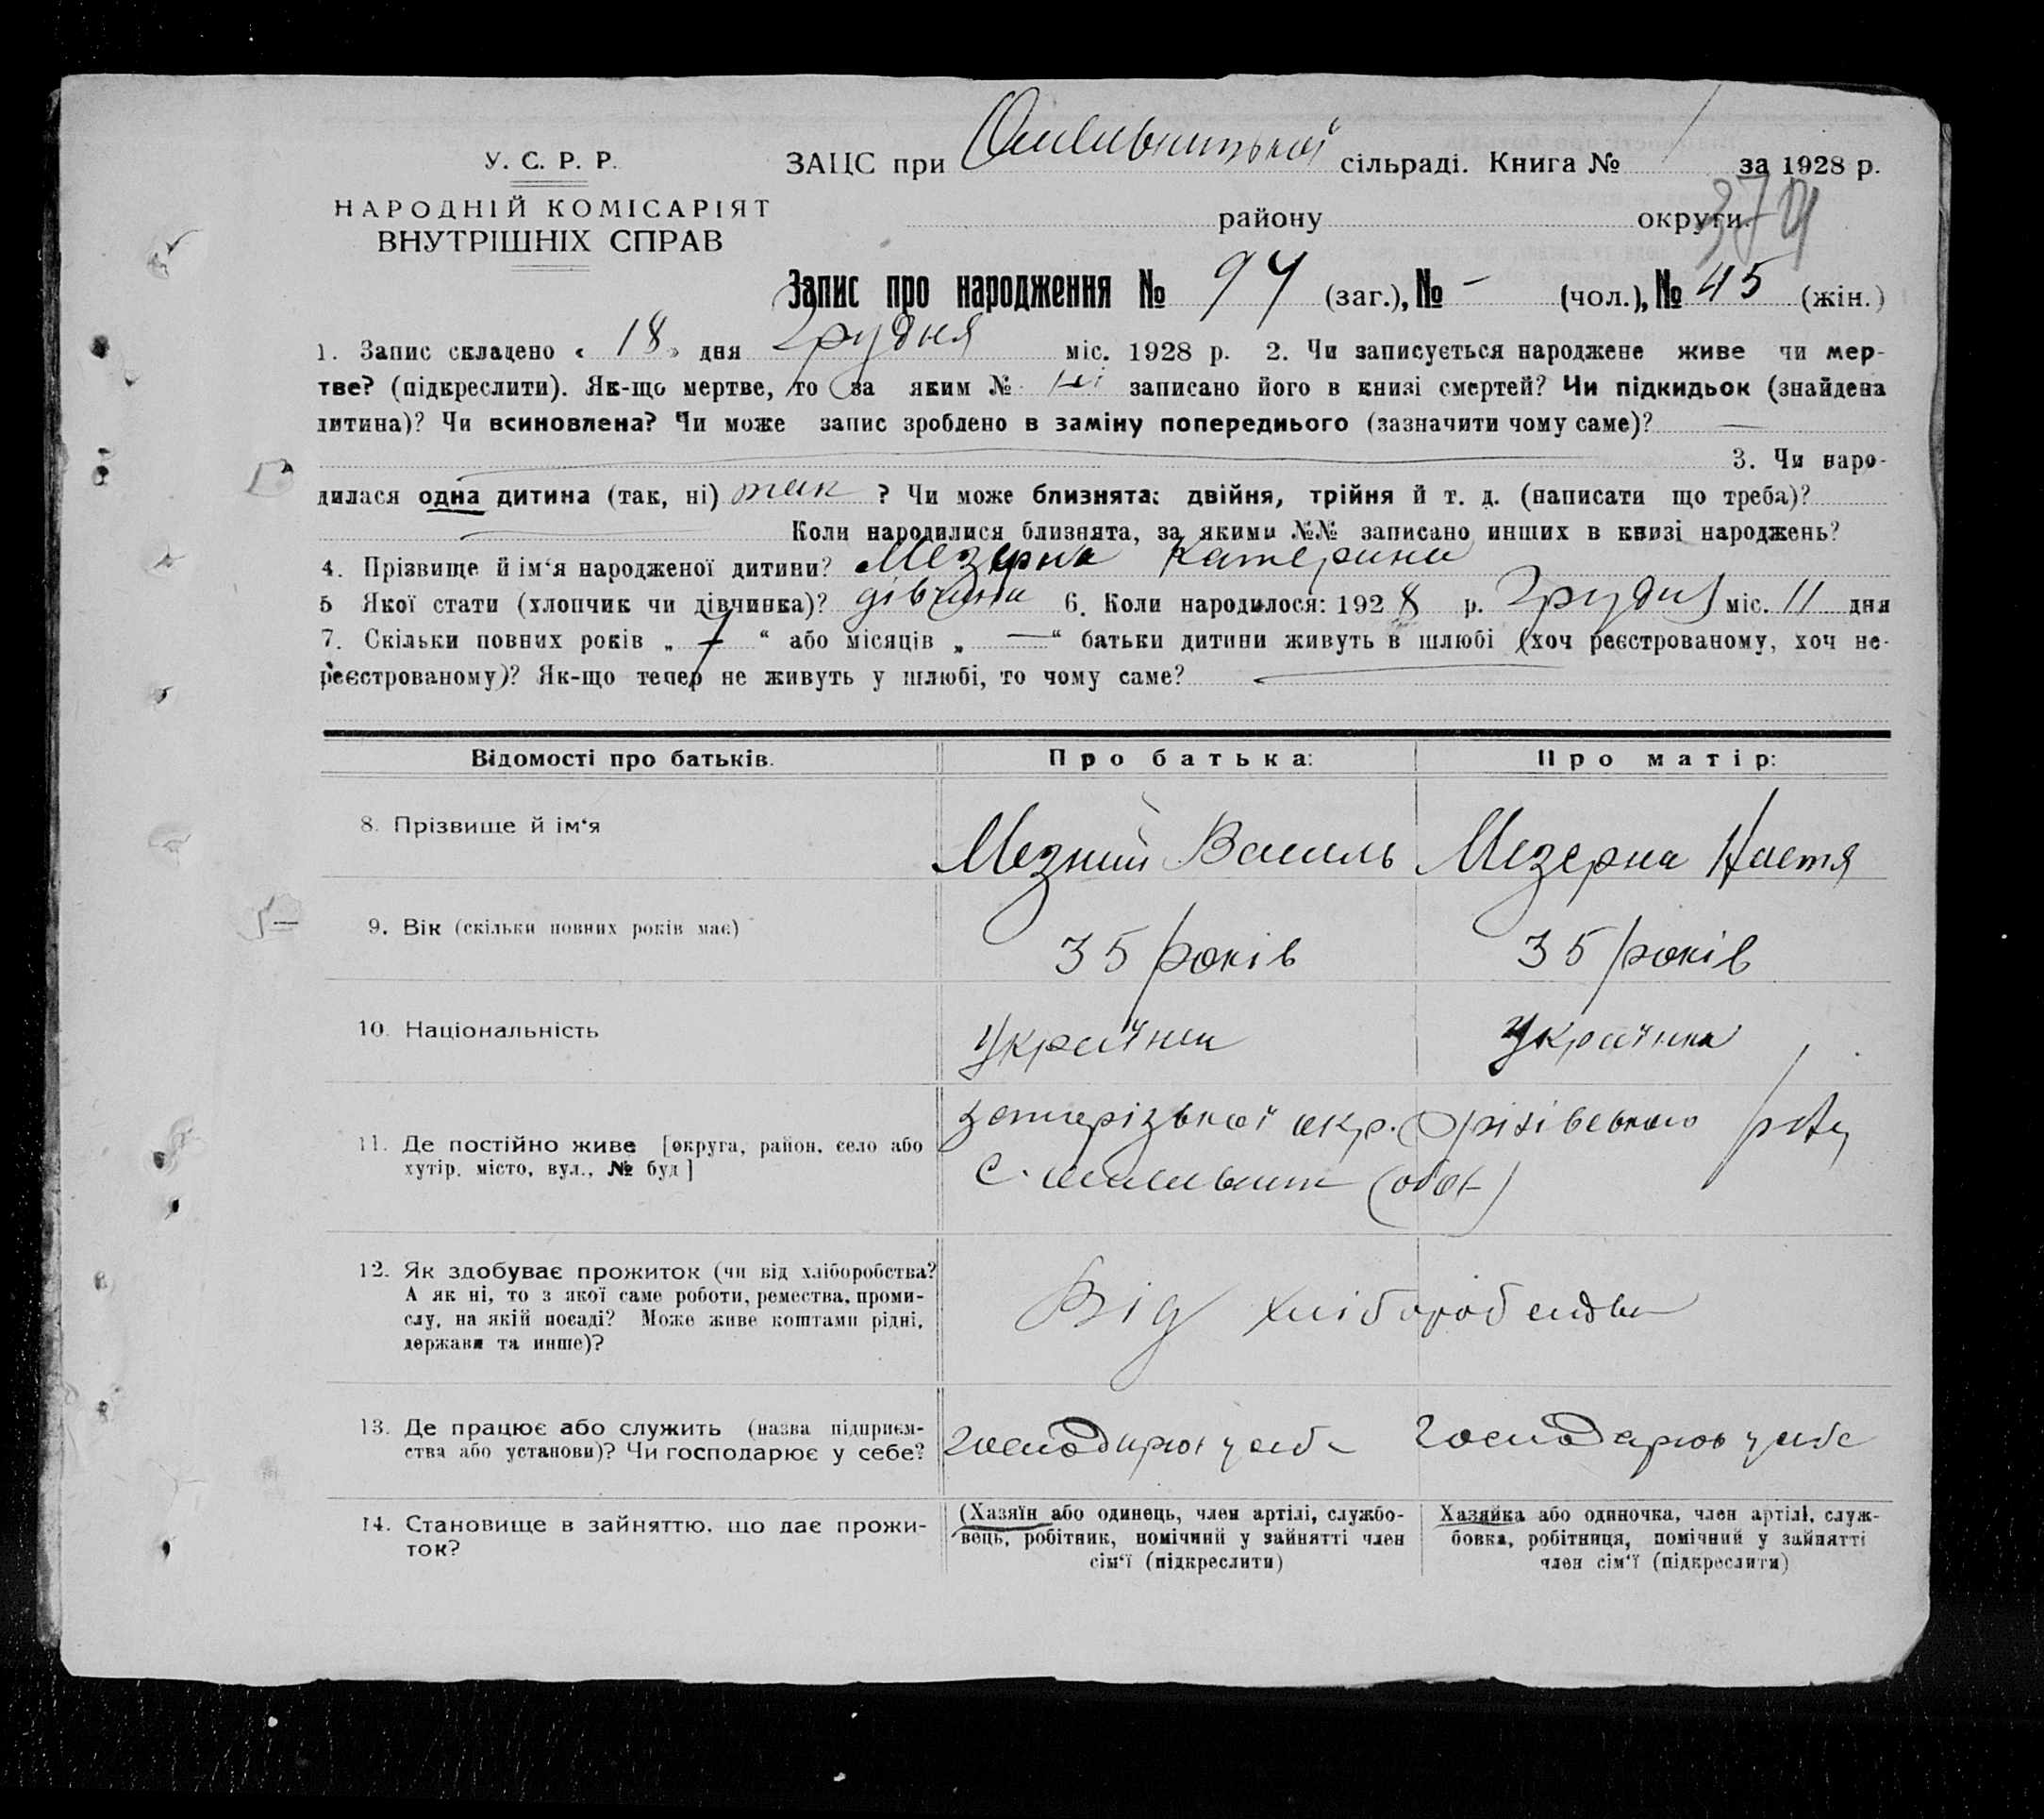 У. С. Р. Р.
НАРОДНІЙ КОМІСАРІЯТ
ВНУТРІШНІХ СПРАВ
ЗАЦС при сільраді. Книга № за 1928 р.
району округи.
Запис про народження № 94 (заг.), № - (чол.), № 45 (жін.)
1. Запис складено « 18 » дня Грудня міс. 1928 р. 2. Чи записується народжене живе чи мер-
тве? (підкреслити). Як-що мертве, то за яким № записано його в книзі смертей? Чи підкидьок (знайдена
дитина)? Чи всиновлена? Чи може запис зроблено в заміну попереднього (зазначити чому саме)? —
3. Чи наро-
дилася одна дитина (так, ні) так ? Чи може близнята: двійня, трійня й т. д. (написати що треба)?
Коли народилися близнята, за якими №№ записано инших в книзі народжень?
4. Прізвище й ім‘я народженої дитини? Мезерна Катерина
5 Якої стати (хлопчик чи дівчинка)? дівчина 6. Коли народилося: 1928 р. Грудня міс. 11 дня
7. Скільки повних років „ “ або місяців „ — “ батьки дитини живуть в шлюбі (хоч реєстрованому, хоч не-
реєстрованому)? Як-що тепер не живуть у шлюбі, то чому саме?
Відомості про батьків.
Про батька:
Про матір:
8. Прізвище й ім‘я
Мезний Василь
Мезерна Настя
9. Вік (скільки повних років має)
35 років
35 років
10. Національність
Українец
Українка
11. Де постійно живе [округа, район, село або
хутір, місто, вул., № буд]
запорізької окр. Оріхівського
с.
12. Як здобуває прожиток (чи від хліборобства?
А як ні, то з якої саме роботи, ремества, проми-
слу, на якій посаді? Може живе коштами рідні,
держави та инше)?
Від хліборобства
13. Де працює або служить (назва підприєм-
ства або установи)? Чи господарює у себе?
господарює у себе
господарює у себе
14. Становище в зайняттю, що дає прожи-
ток?
(Хазяїн або одинець, член артілі, службо-
вець, робітник, помічний у зайнятті член
сім‘ї (підкреслити)
Хазяйка або одиночка, член артілі, служ-
бовка, робітниця, помічний у зайнятті
член сім‘ї (підкреслити)